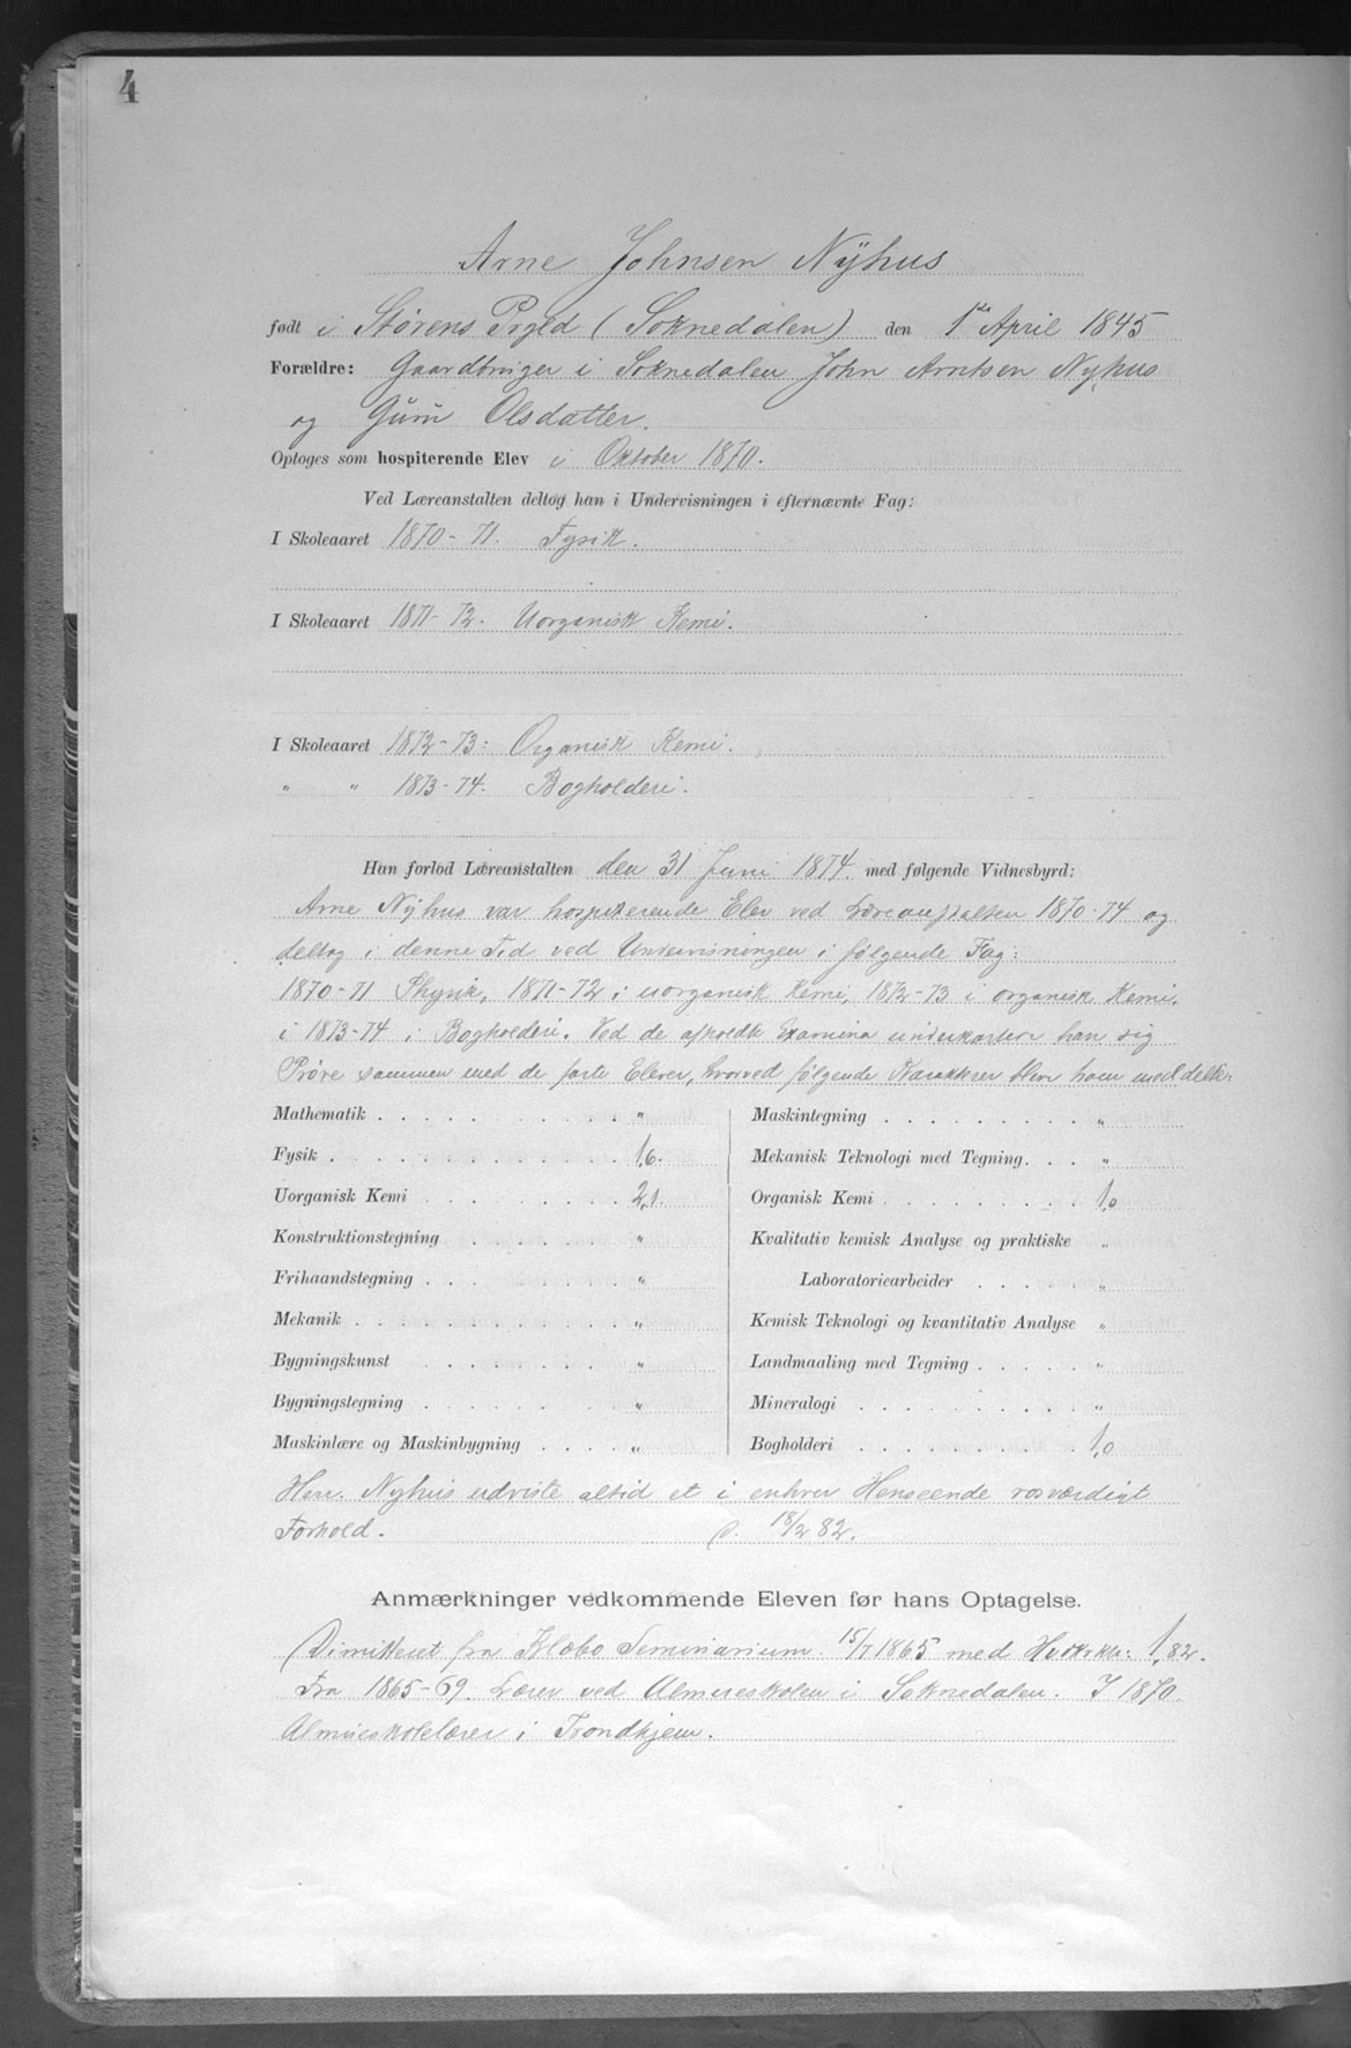 4
Arne Johnsen Nÿhus
født i Størens Prgld (Soknedalen) den 1ste April 1845
Forældre: Gaardbruger i Soknedalen John Arntsen Nyhus
og Gŭrŭ Olsdatter.
Optoges som hospiterende Elev i Oktober 1870.
Ved Læreanstalten deltog han i Undervisningen i efternævnte Fag:
I Skoleaaret 1870-71. Fysik.
I Skoleaaret 1871-72. Uorganisk Kemi.
I Skoleaaret 1872-73: Organisk Kemi.
" " 1873-74. Bogholderi.
Han forlod Læreanstalten den 31 Juni 1874. med følgende Vidnesbyrd:
Arne Nÿhus var hospiterende Elev ved Læreanstalten 1870-74 og
deltog i denne Tid ved Undervisningen i følgende Fag:
1870-71 Physik, 1871-72 i uorganisk Kemi, 1872-73 i organisk Kemi,
i 1873-74 i Bogholderi. Ved de afholdte Examina underkastede han sig
Prøve sammen med de faste Elever, hvorved følgende Karakterer blev ham meddelt:
Mathematik . . . "
Fysik . . . 1,6.
Uorganisk Kemi . . . 2,1.
Konstruktionstegning . . . "
Frihaandstegning . . . "
Mekanik . . . "
Bygningskunst . . . "
Bygningstegning . . . "
Maskinlære og Maskinbygning . . . "
Maskintegning . . . "
Mekanisk Teknologi med Tegning . . . "
Organisk Kemi . . . 1,0
Kvalitativ kemisk Analyse og praktiske "
Laboratoriearbeider . . . "
Kemisk Teknologi og kvantitativ Analyse "
Landmaaling med Tegning . . . "
Mineralogi . . . "
Bogholderi . . . 1,0
Herr. Nyhus udviste altid et i enhver Henseende rosværdigt
Forhold. D. 18/2 82.
Anmærkninger vedkommende Eleven før hans Optagelse.
Dimitteret fra Klæbo Seminarium 15/7 1865 med Hvdkrkt: 1,82.
Fra 1865-69. Lærer ved Almueskolen i Soknedalen. I 1870.
Almueskolelærer i Trondhjem.